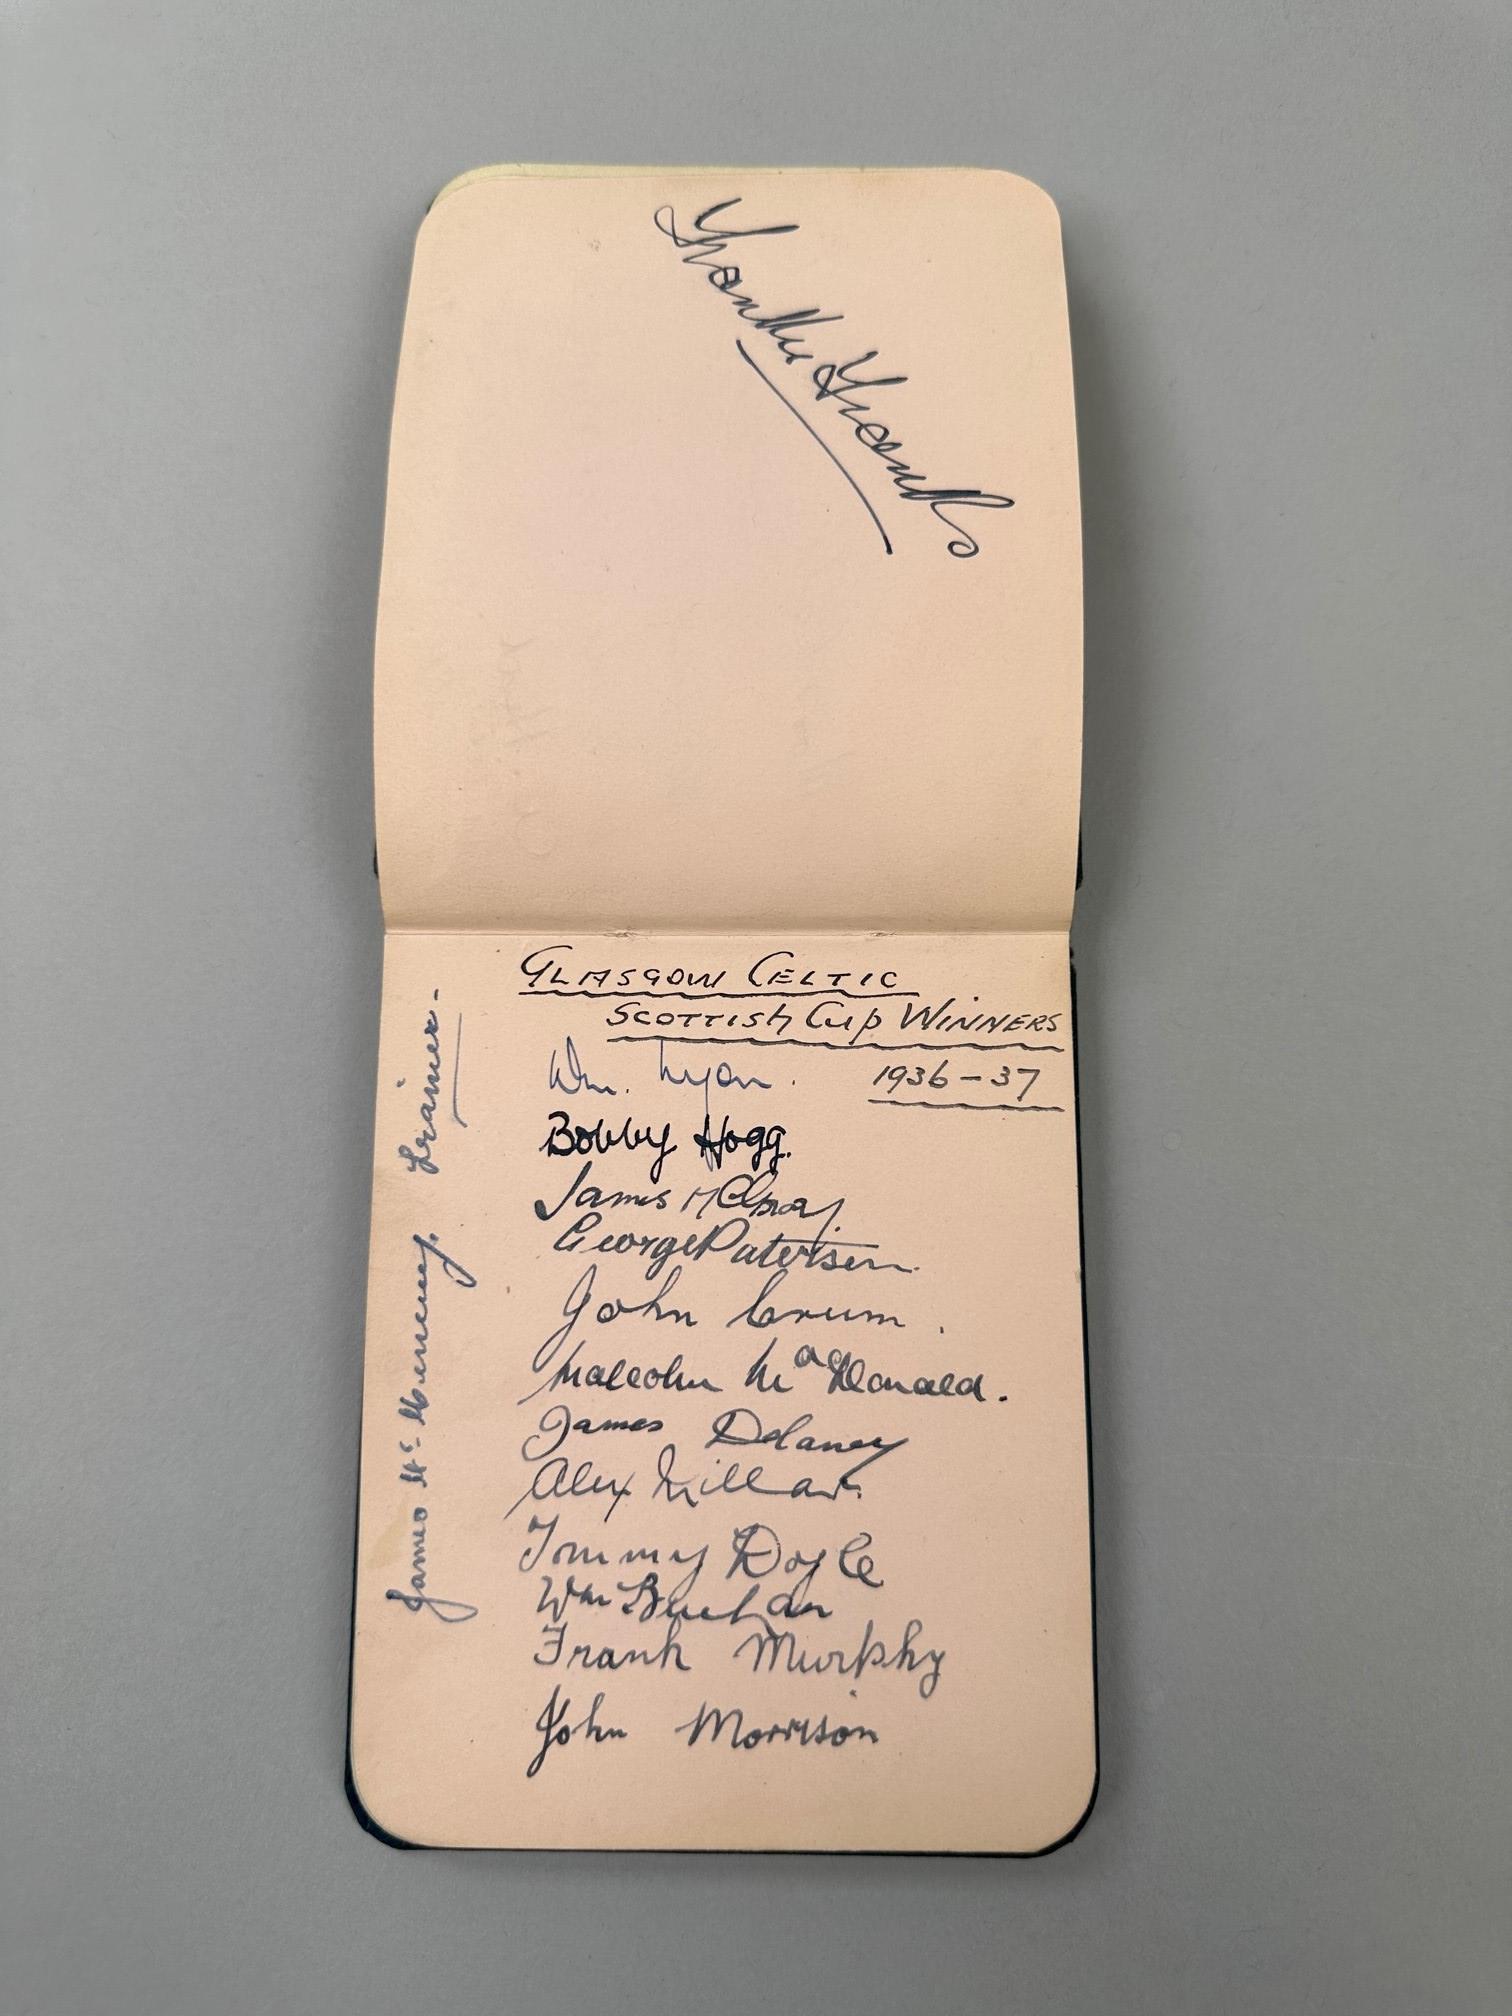 GLASGOW CELTIC
SCOTTISH CUP WINNERS
1936-37
Wm. Lyon.
Bobby Hogg.
James McGrory.
George Paterson.
John Crum.
Malcolm MacDonald.
James Delaney
Alex Millar.
Tommy Doyle
Wm Buchan
Frank Murphy
John Morrison
James Mc Menemy. Trainer-